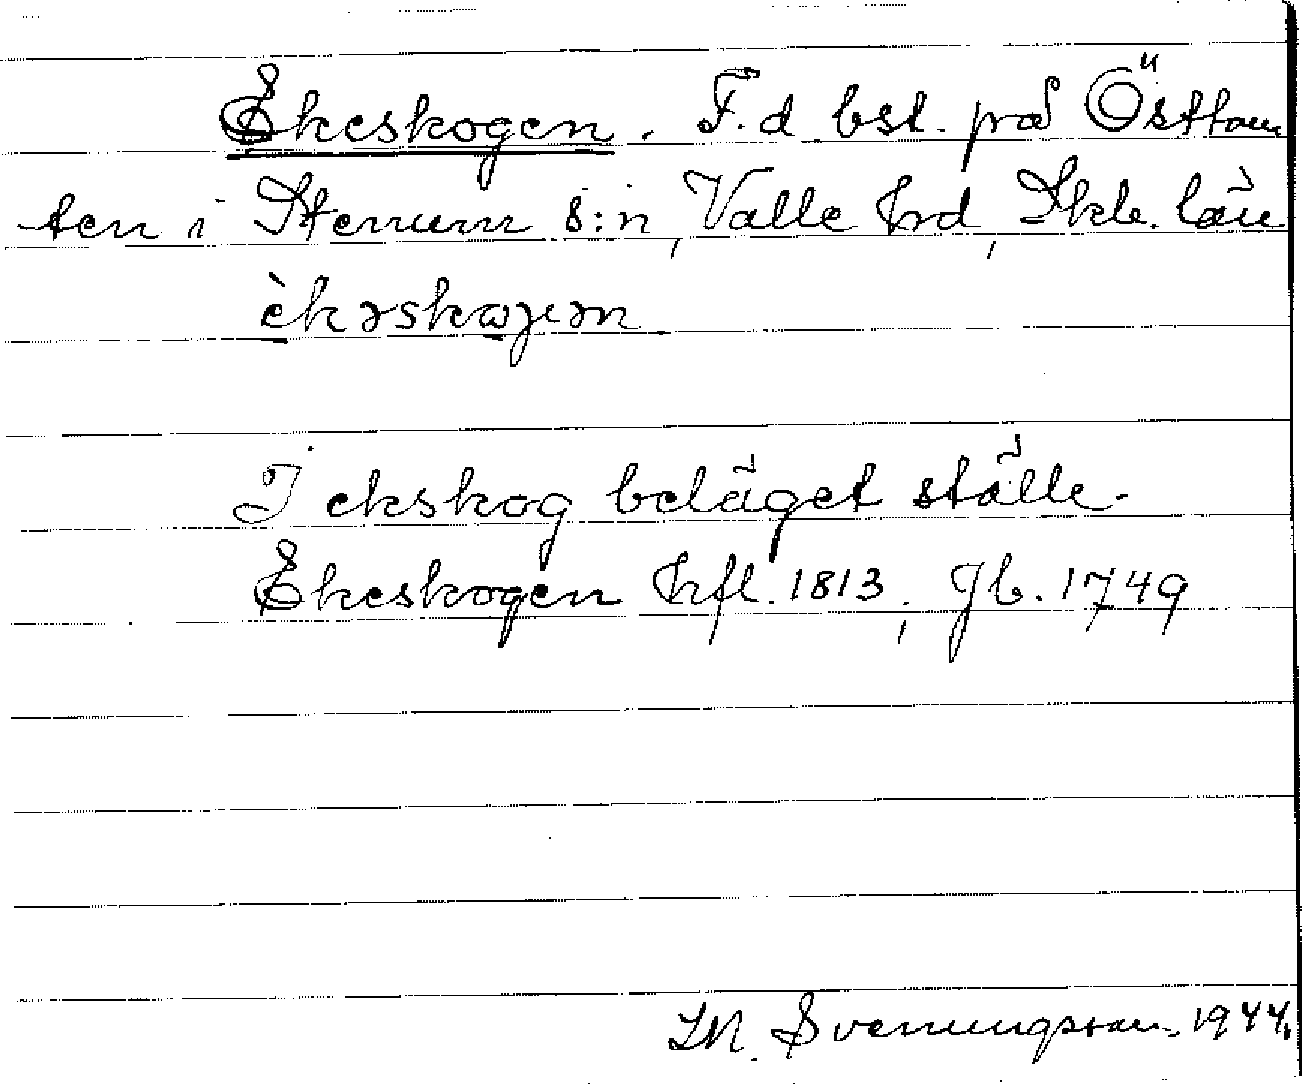 Ekeskogen. F.d bst. på Östtom
ten i Stenum s:n, Valle hrd, Skb. län
èkəskogen
I ekskog beläget ställe.
Ekeskogen hfl. 1813, Jb. 1749
M. Svenungsson. 1944.